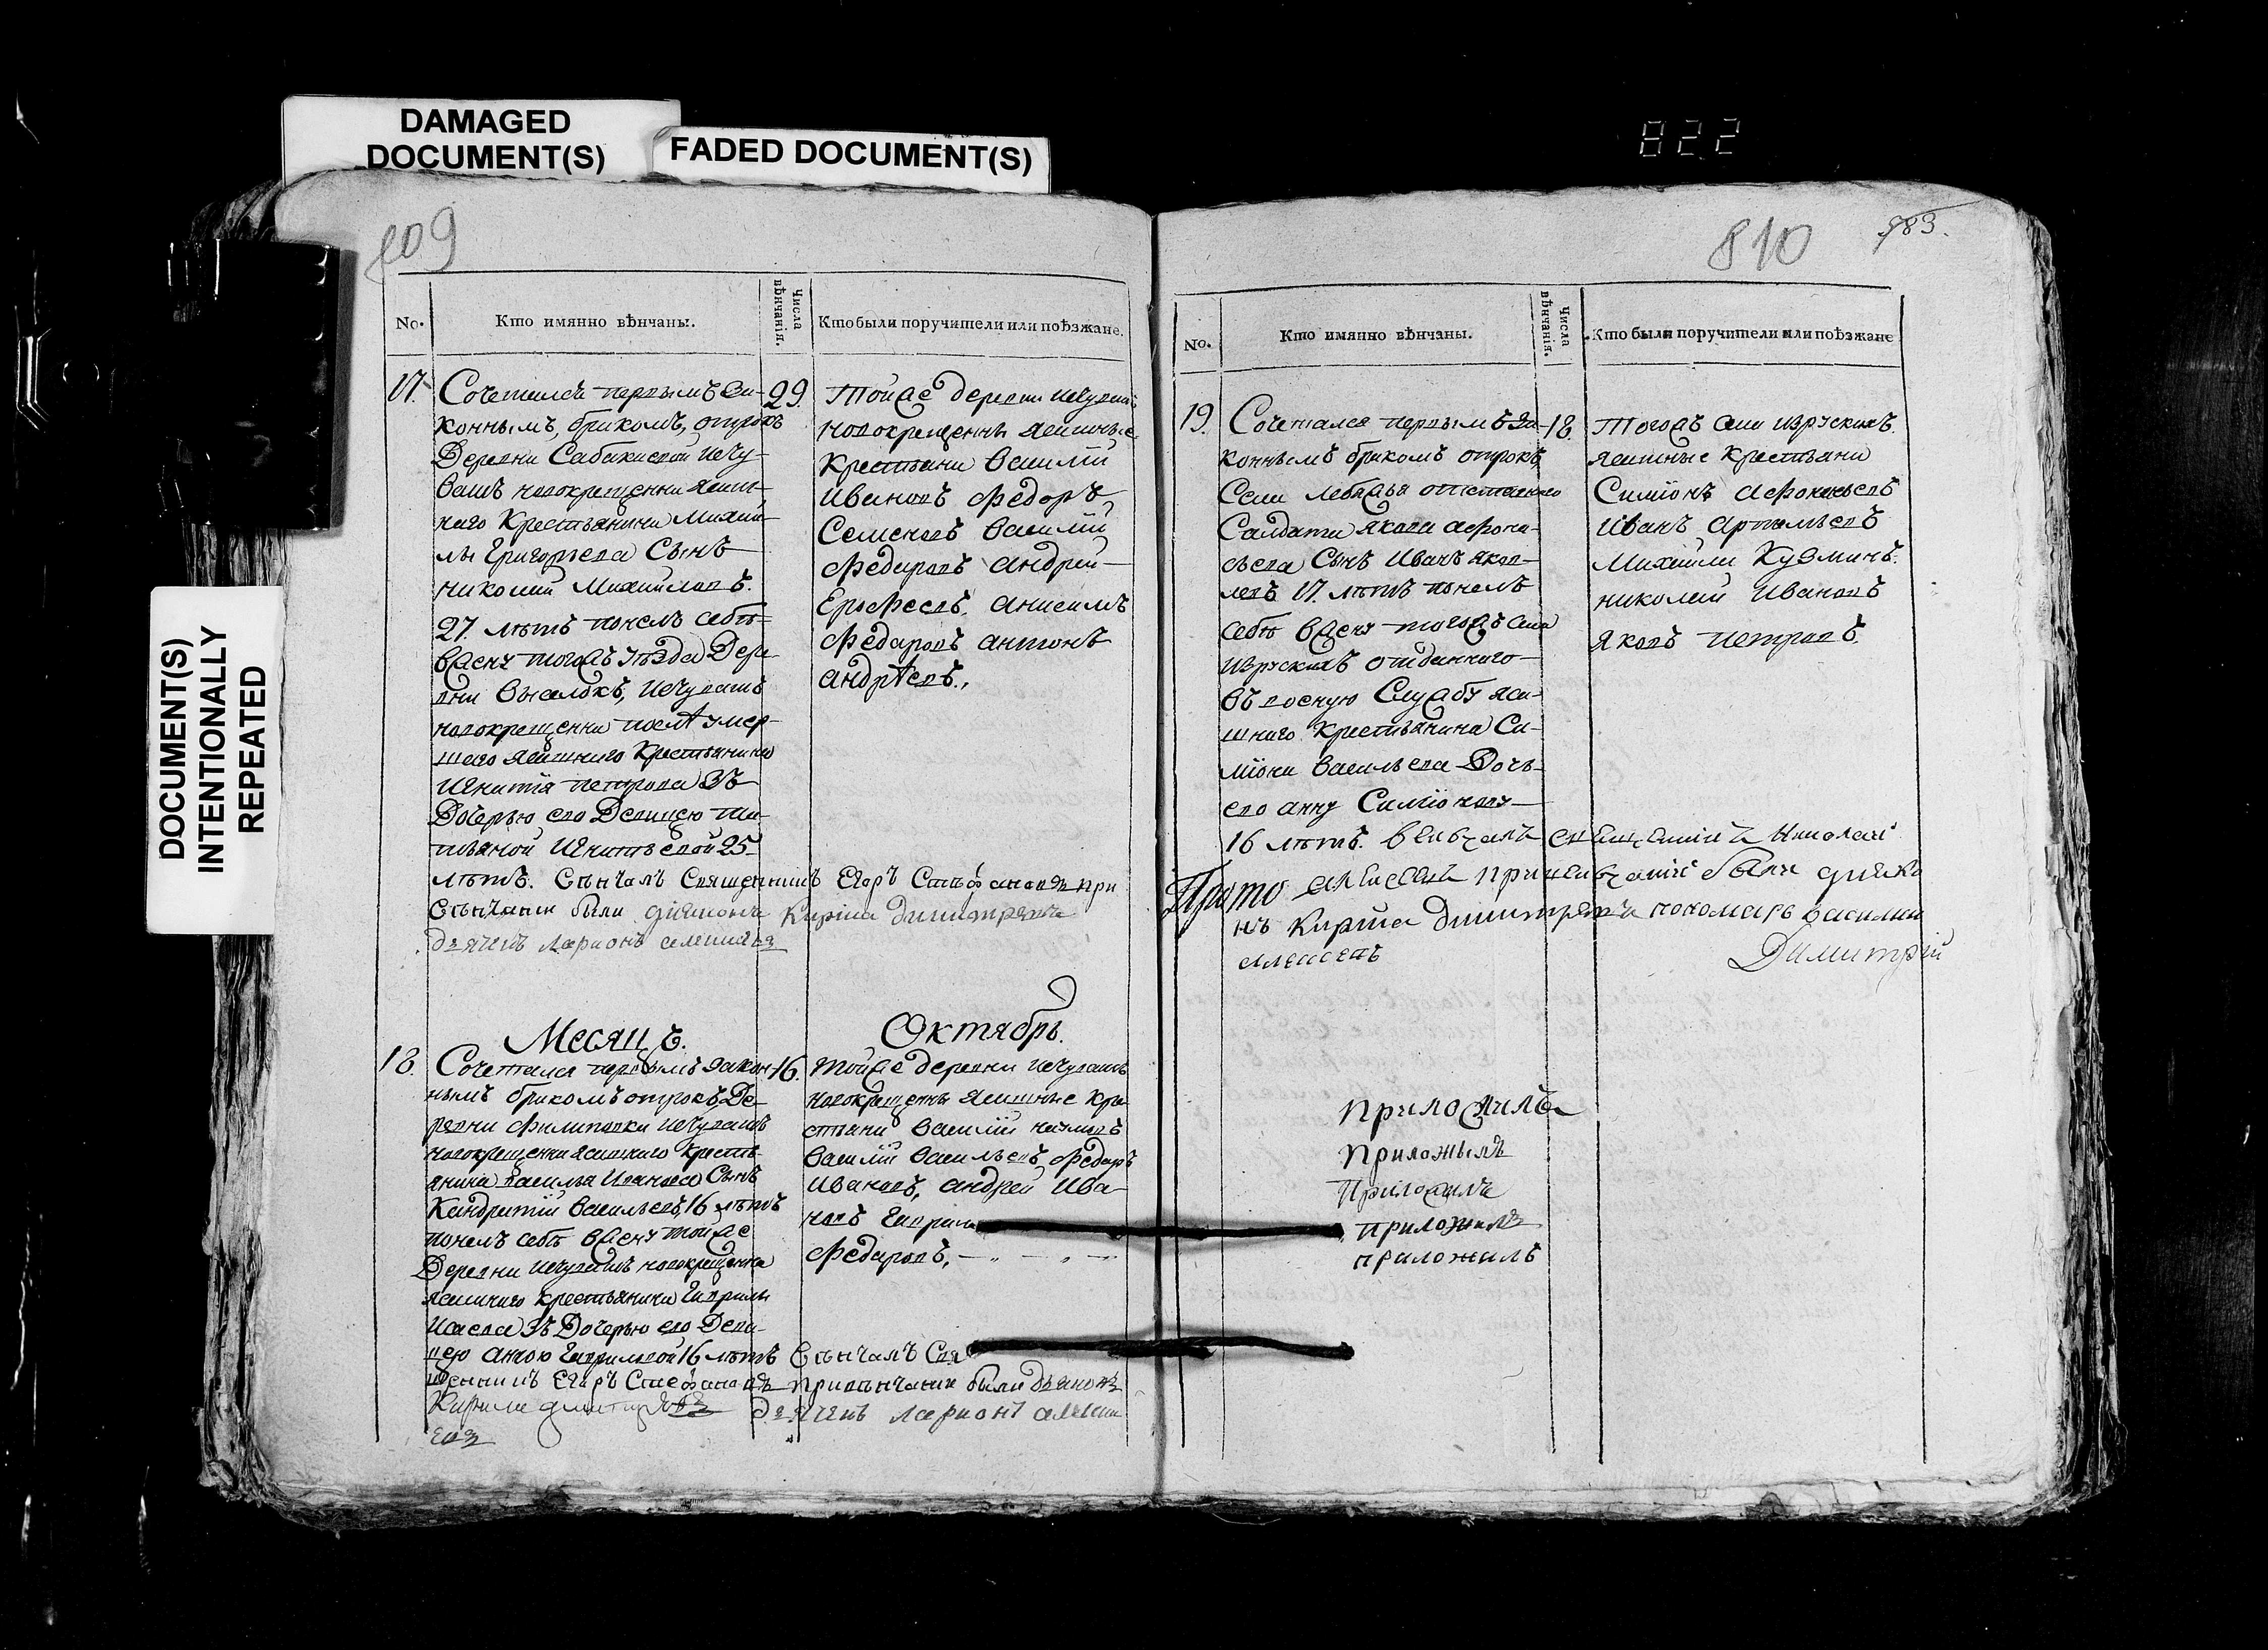 DAMAGED
DOCUMENT(S)
FADED DOCUMENT(S)
822
DOCUMENT(S)
INTENTIONALLY
REPEATED
809
No.
Кто имянно вѣнчаны.
Числа
вѣнчанія.
Кто были поручители или поѣзжане.
17. Сочетался первымъ за-
коннымъ, бракомъ, отрокъ
Деревни
новокрещенна ясаш-
наго Крестьянина Михай-
лы Григорьева Сынъ
николай Михайловъ.
27. лѣтъ понелъ себѣ
вжену тогожъ уѣзда Дере-
вни Выселокъ, изчувашъ
новокрещенна послѣ умер-
шаго ясашнаго Крестьянина
Игнатія петрова Зъ
Дочерью ево Девицею та-
тьяной Игнатьевой 25
лѣтъ. Венчалъ Священникъ Егоръ Стефановъ при
венчании были диаконъ Кирила димитриевъ
дьячекъ ларионъ алексиевъ
29.
Тойже деревни изчувашъ
новокрещенны ясашные
Крестьяни Василій
Ивановъ Федоръ
Семеновъ Василій
Федаровъ андрей
Ерофеевъ, анисимъ
Федаровъ антонъ
андрѣевъ.,
Месяцъ. Октябрь.
18. Сочетался первымъ закон-
нымъ бракомъ отрокъ, Де-
ревни Филиповки изчувашъ
новокрещенна ясашнаго Кресть-
янина василья Иванова Сынъ
Кандратій Васильевъ, 16 лѣтъ
понелъ себѣ вжену тойже
Деревни изчувашъ новокрещенна
ясашнаго Крестьянина Гаврилы
Исаева Зъ Дочерью ево Деви-
цею анною Гавриловой 16 лѣтъ Венчалъ Свя
щенникъ Егоръ Стефановъ привенчании были дьяконъ
Кирила димитриевъ дьячекъ ларионъ алекси
евъ
16.
тойже деревни изчувашъ
новокрещены ясашные кре-
стьяни Василій
Василій Васильевъ, Федаръ
Ивановъ, андрей Ива-
новъ Гаврила
Федаровъ,
810
983.
No.
Кто имянно вѣнчаны.
Числа
вѣнчанія.
Кто были поручители или поѣзжане
19. Сочетался первымъ за-
коннымъ бракомъ отрокъ,
Села Лебяжья отставнаго
Салдата якова афона-
сьева Сынъ Иванъ яков-
левъ 17. лѣтъ понелъ
себѣ вжену тогожъ села
изрускихъ отданнаго
въ военую Службу яса-
шнаго Крестьянина Си-
міона Васильева Дочь
ево анну Симіонову
16 лѣтъ. венчалъ священникъ Николай
алексеевъ при венчании были диако
нъ Кирила димитриевъ пономарь василии
алексеевъ
Димитрій
18.
Тогожъ села изрускихъ.
ясашные Крестьяни
Симіонъ афонасьевъ
Иванъ артемьевъ
Михайла Кузминъ.
николай Ивановъ
Яковъ петровъ.
Приложилъ
Приложилъ
Приложилъ
приложилъ
приложилъ